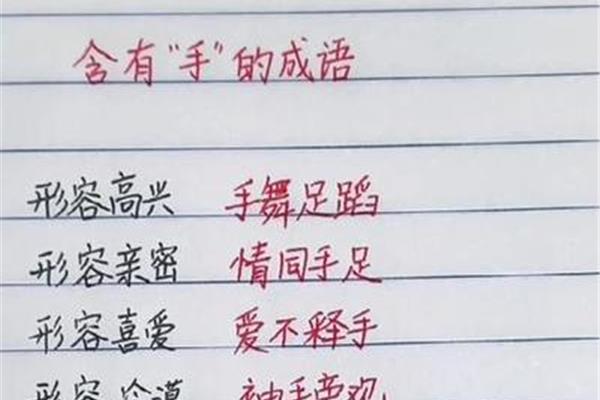 含有“手”的成语
形容高兴 手舞足蹈
形容亲密 情同手足
形容喜爱 爱不释手
形容冷漠 袖手旁观